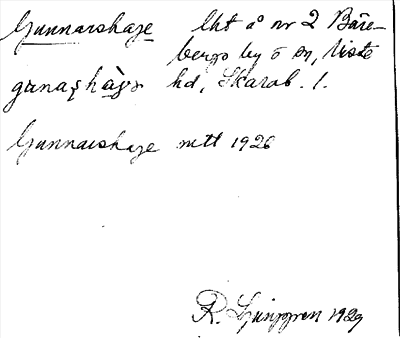 Gunnarshage lht å nr 2 Bäre-
bergs by o sn, Viste
gunaşhàgə hd, Skarab. l.
Gunnarshage mtl 1926
R. Ljunggren 1929